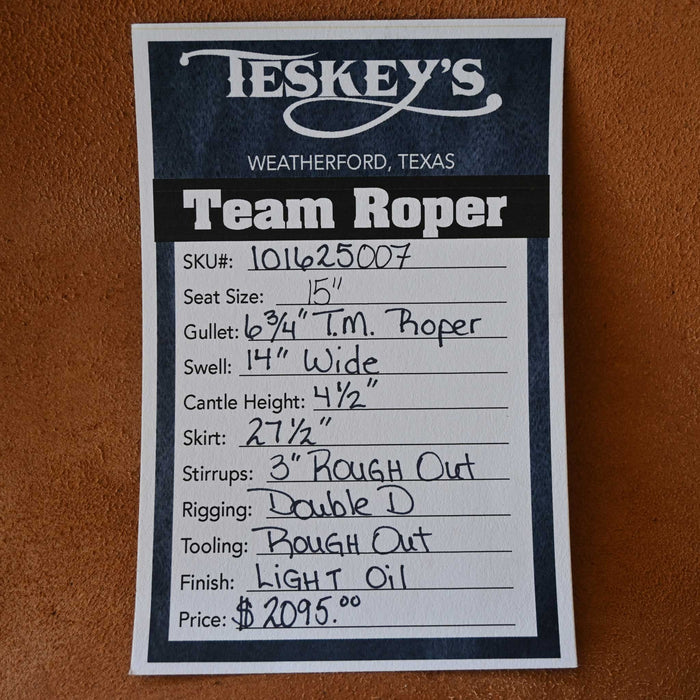 TESKEY'S
WEATHERFORD, TEXAS
Team Roper
SKU#: 101625007
Seat Size: 15"
Gullet: 6 3/4" T.M. Roper
Swell: 14" Wide
Cantle Height: 4 1/2"
Skirt: 27 1/2"
Stirrups: 3" ROUGH Out
Rigging: Double D
Tooling: ROUGH Out
Finish: LIGHT Oil
Price: $ 2095.00